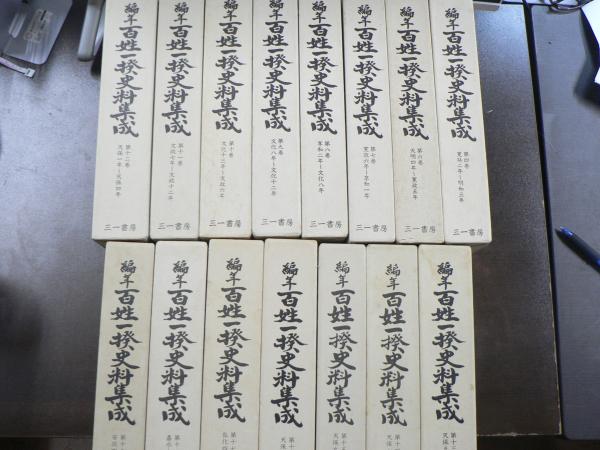 編年百姓一揆史料集成
第十二巻
天保一年～天保四年
三一書房
編年百姓一揆史料集成
第十一巻
文政七年～文政十二年
三一書房
編年百姓一揆史料集成
第十巻
文化十三年～文政六年
三一書房
編年百姓一揆史料集成
第九巻
文化八年～文化十二年
三一書房
編年百姓一揆史料集成
第八巻
享和二年～文化八年
三一書房
編年百姓一揆史料集成
第七巻
寛政六年～享和一年
三一書房
編年百姓一揆史料集成
第六巻
天明四年～寛政五年
三一書房
編年百姓一揆史料集成
第四巻
寛延二年～明和三年
三一書房
編年百姓一揆史料集成
編年百姓一揆史料集成
編年百姓一揆史料集成
編年百姓一揆史料集成
編年百姓一揆史料集成
編年百姓一揆史料集成
編年百姓一揆史料集成